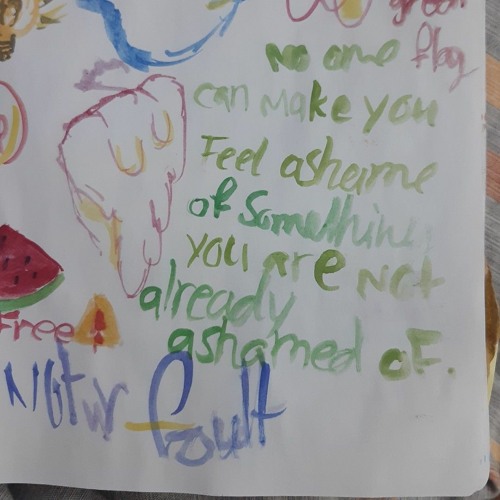 green
flag
No one
can make you
Feel ashame
of Something
you are Not
already
ashamed of.
Free
Not ur fault